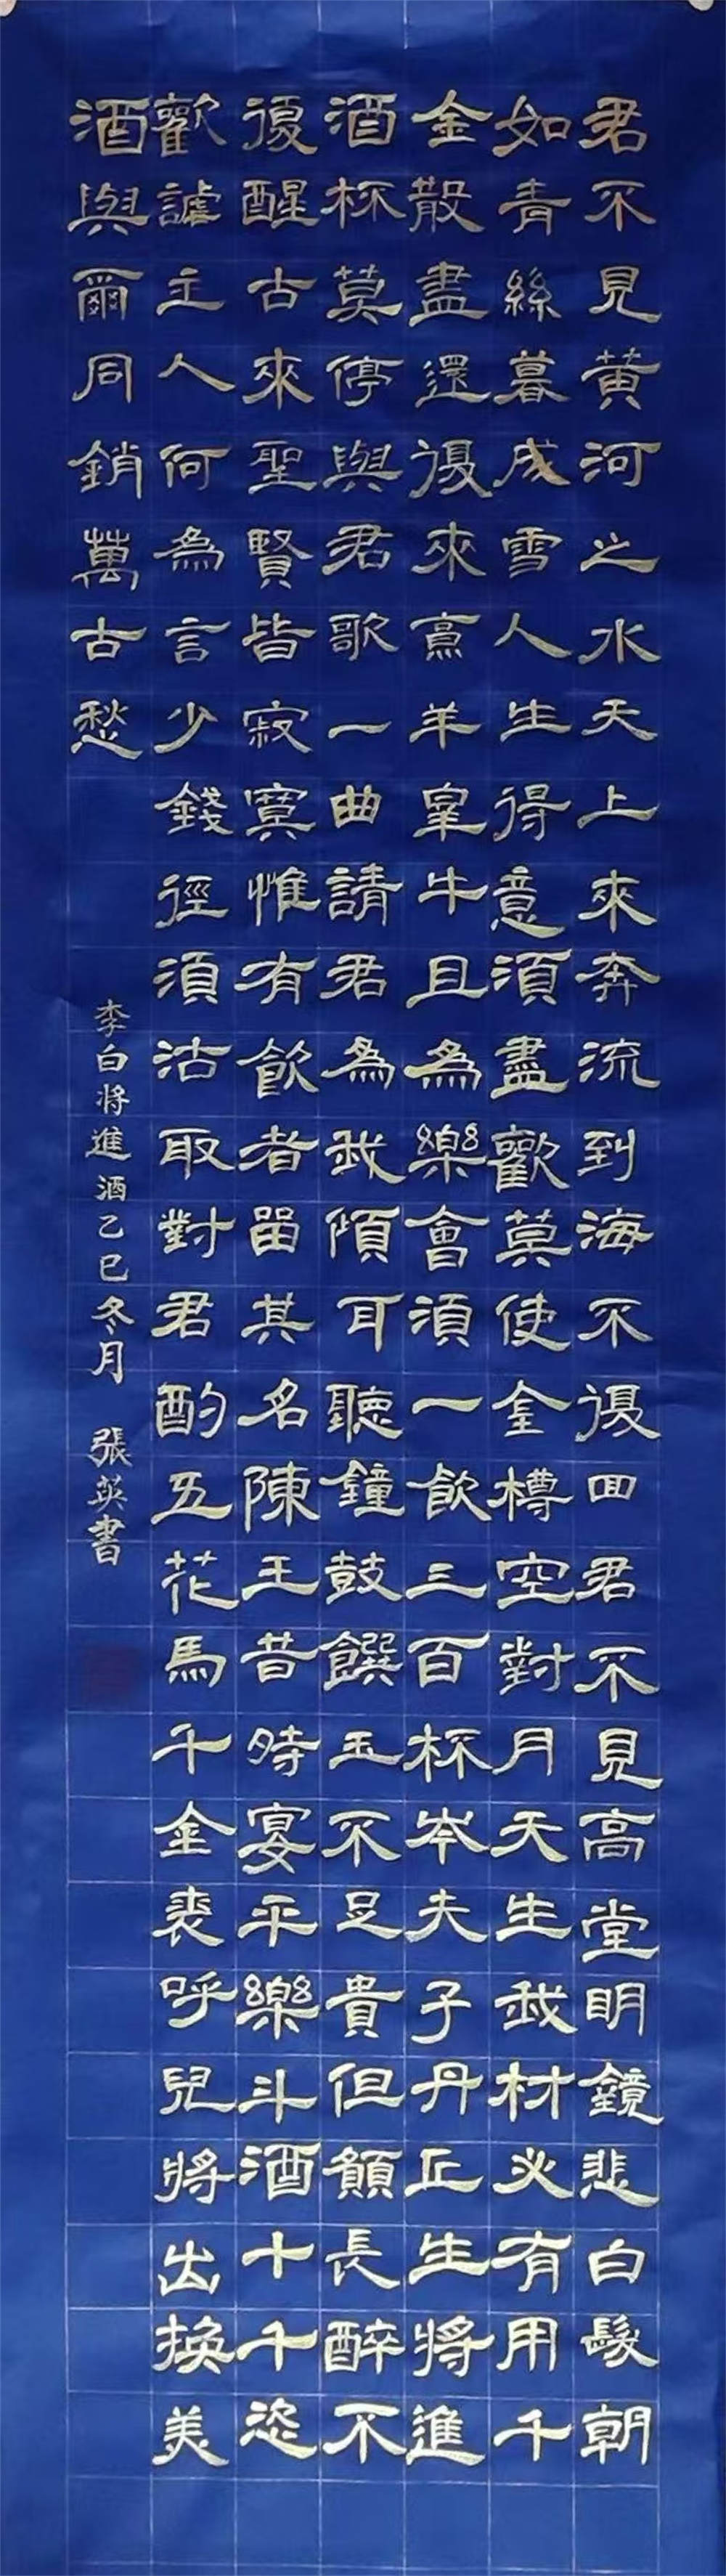 君不見黄河之水天上來奔流到海不復回君不見高堂明鏡悲白髮朝
如青絲暮成雪人生得意須盡歡莫使金樽空對月天生我材必有用千
金散盡還復來烹羊宰牛且為樂會須一飲三百杯岑夫子丹丘生將進
酒杯莫停與君歌一曲請君為我傾耳聽鐘鼓饌玉不足貴但願長醉不
復醒古來聖賢皆寂寞惟有飲者留其名陳王昔時宴平樂斗酒十千恣
歡謔主人何為言少錢徑須沽取對君酌五花馬千金裘呼兒將出換美
酒與爾同銷萬古愁
李白将進酒乙巳冬月 張英書